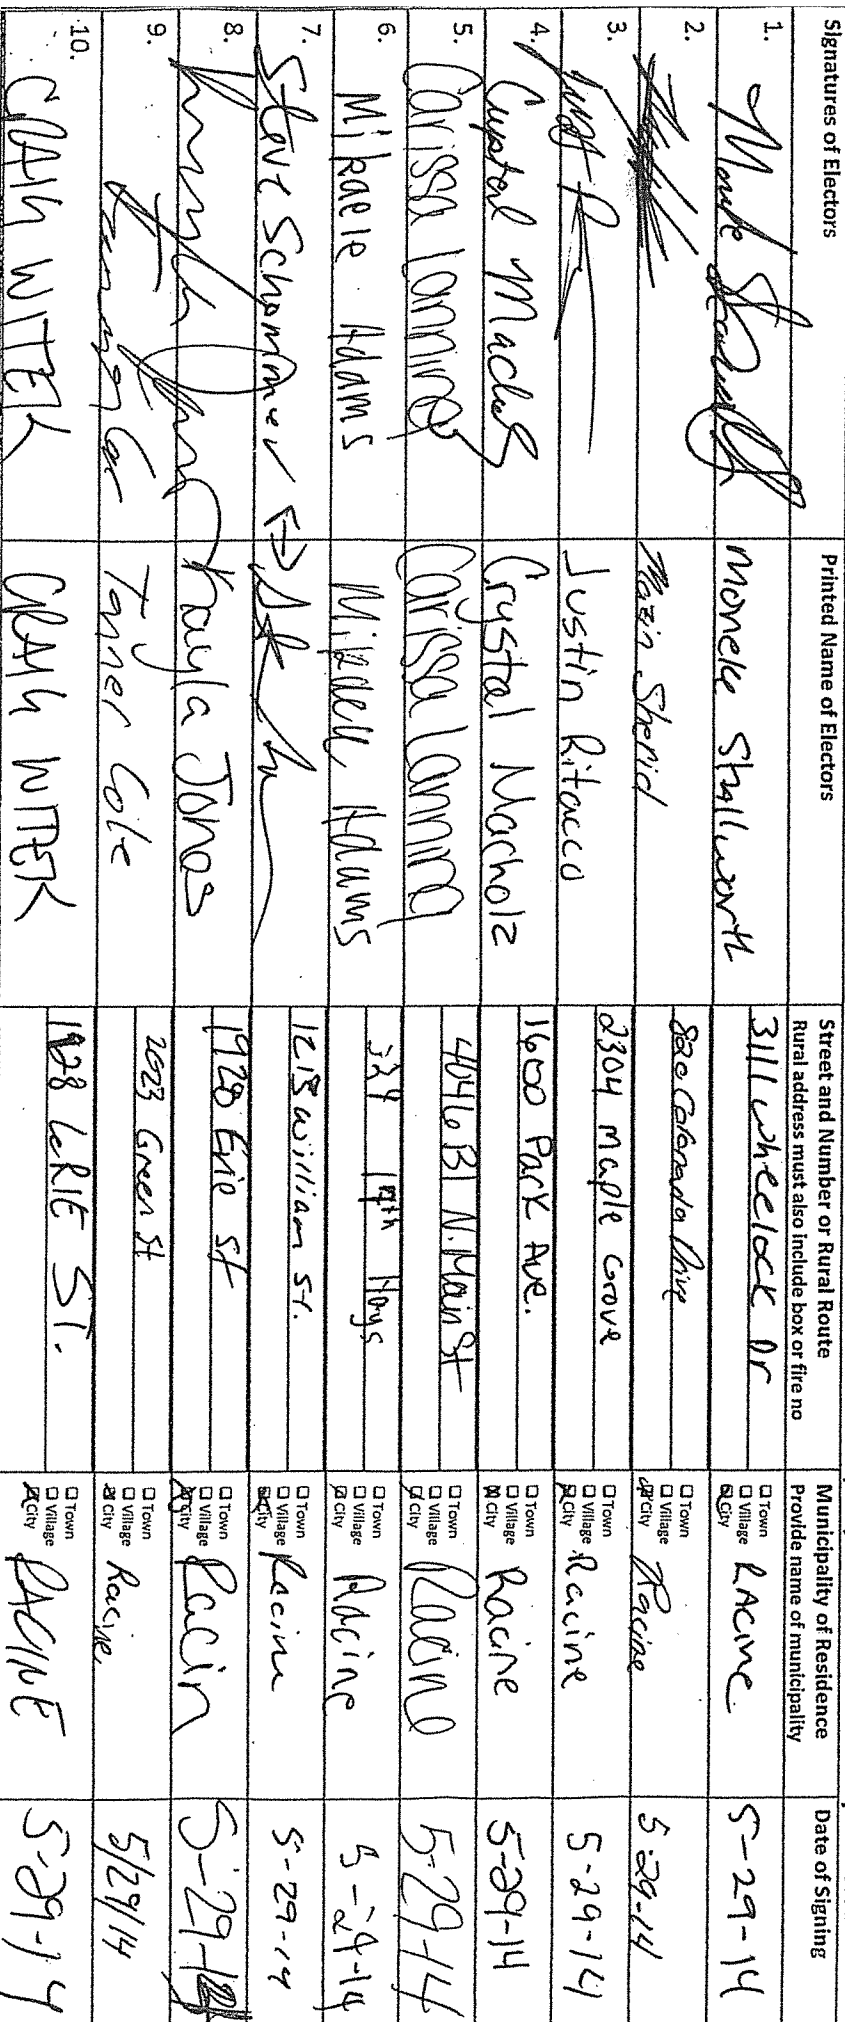 Signatures of Electors
Printed Name of Electors
Street and Number or Rural Route
Rural address must also include box or fire no
Municipality of Residence
Provide name of municipality
Date of Signing
1.
Moneke Shallworth
3111 Wheelock Dr
☐ Town
☐ Village
☒ City
RAcine
5-29-14
2.
Mazin Sherid
820 Colorado Drive
☐ Town
☐ Village
☒ City
Racine
5-29-14
3.
Justin Ritacco
2304 Maple Grove
☐ Town
☐ Village
☒ City
Racine
5-29-14
4.
Crystal Macholz
Crystal Macholz
1600 Park Ave.
☐ Town
☐ Village
☒ City
Racine
5-29-14
5.
Carissa Lanning
Carissa Lanning
4046 B1 N. Main St
☐ Town
☐ Village
☒ City
Racine
5-29-14
6.
Mikaele Adams
Adams
☐ Town
☐ Village
☒ City
Racine
5-29-14
7.
Steve Schommer
1215 William St.
☐ Town
☐ Village
☒ City
Racine
5-29-14
8.
Kayla Jones
1920 Erie St
☐ Town
☐ Village
☒ City
Racin
5-29-14
9.
Tanner Cole
2023 Green St
☐ Town
☐ Village
☒ City
Racine
5/29/14
10.
CRAIG WITTEK
CRAIG WITTEK
1928 ERIE ST.
☐ Town
☐ Village
☒ City
RACINE
5-29-14